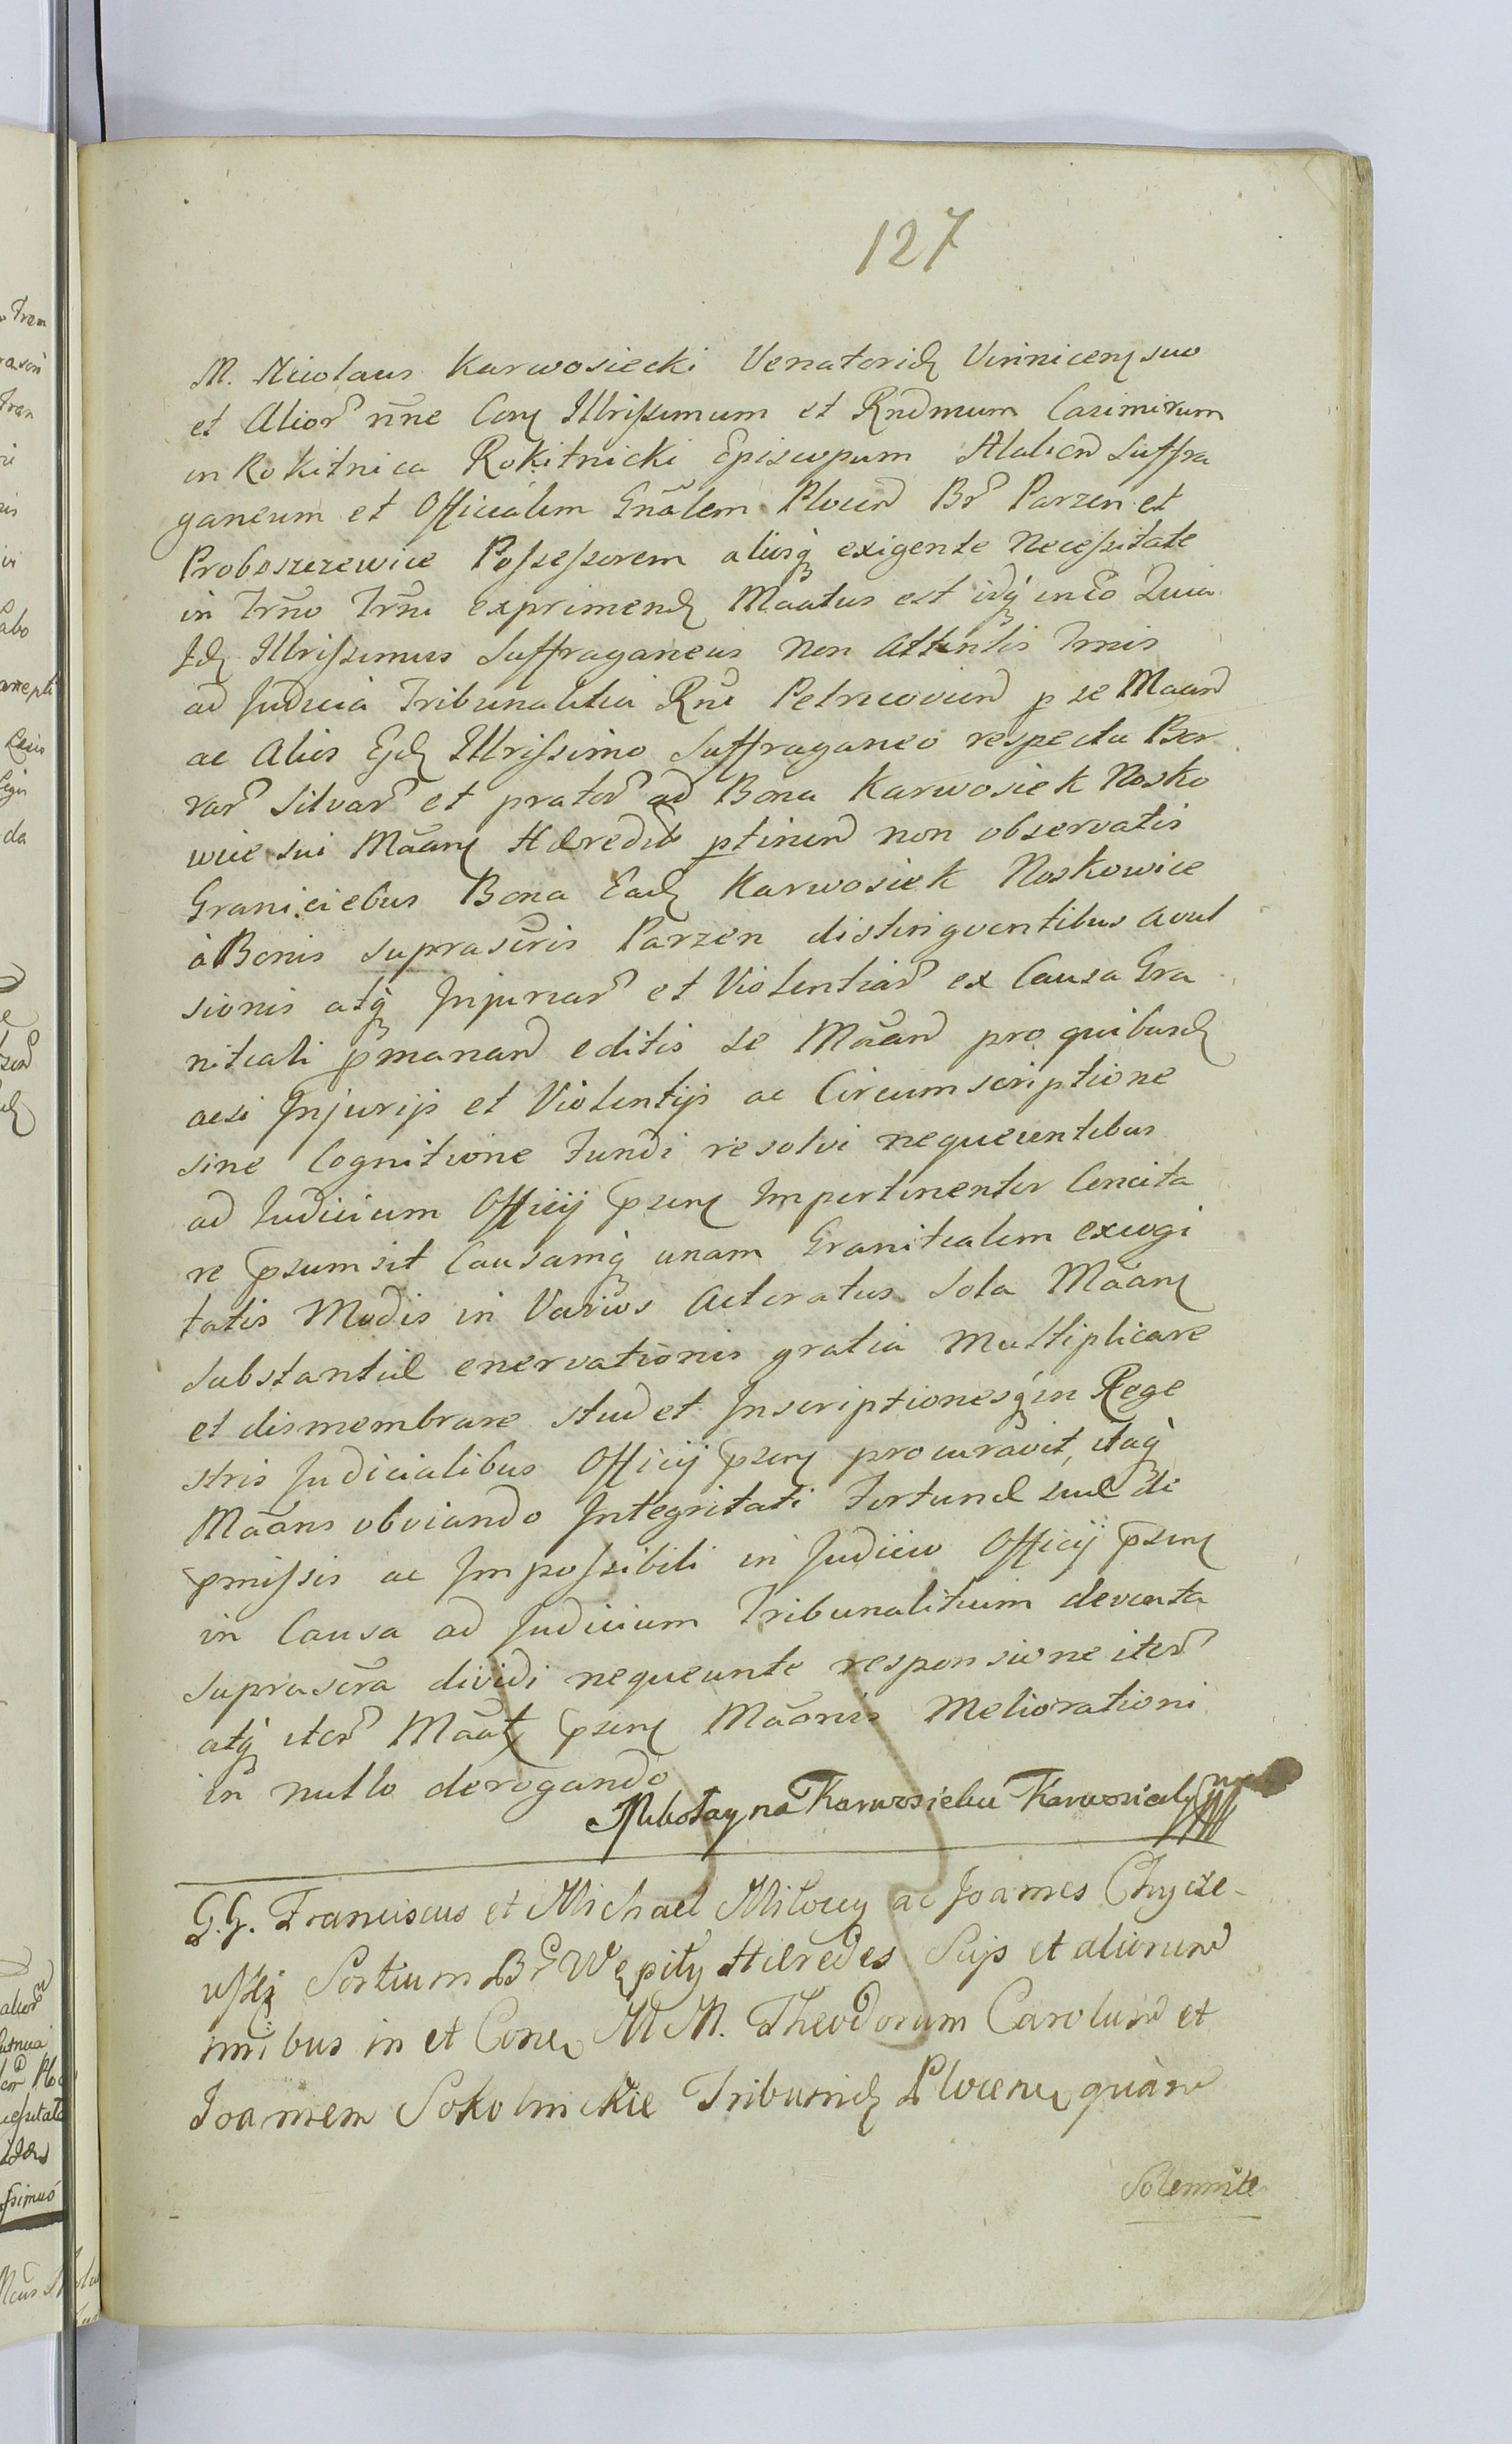 127
M. Nicolaus Karwosiecki Venatorid Vinnicen suo
et Alior nne Con Illrissimum et Rndmum Casimirum
in Rokitnica Rokitnicki Episcopum Halicen Suffra
ganeum et Officialem Gnalem Plocen Br Parzen et
Proboszczewice Possessorem alijsq exigente Necessitate
in Trno Trni exprimend Maatus est idq in eo Quia
Id Illrissimus Suffraganeus non attentis Trnis
ad Judicia Tribunalitia Rni Petricovien p se Maan
ac Alios Ejd Illrissimo Suffraganeo respectu Bor
rar Silvar et prator ad Bona Karwosiek Nosko
wice sui Maan Hæredit ptinen non observatis
Graniciebus Bona Ead Karwosiek Noskowice
à Bonis suprascris Parzen distingventibus avul
sionis atq Injuriar et Violentiar ex Causa Gra
niciali pmanan editis se Maan pro quibusd
acsi Injurijs et Violentijs ac Circumscriptione
sine Cognitione Fundi resolvi nequeuntibus
ad Judicium Officij psen Impertinenter Concita
re psumsit Causamq unam Granicialem excogi
tatis Modis in Varios Actoratus sola Maan
substantiæ enervationis gratia Multiplicare
et dismembrare studet Inscriptionesq in Rege
stris Judicialibus Officij psen procuravit, itaq
Maans obviando Integritati Fortunæ suæ de
pmissis ac Impossibili in Judicio Officij psen
in Causa ad Judicium Tribunalitium devoluta
suprascra dividi nequeunte responsione iter
atq iter Maat psen Maonis Meliorationi
in nullo derogando
Mikołay na Karwosieku Karwosiecki
G.G. Franciscus et Michael Miloccy ac Joannes Chycze-
wski Sortium Br Wępiły Hæredes Suis et aliorum
nnibus in et Con MM. Theodorum Carolum et
Joannem Sokolnickie Tribunid Plocen quam
Solennite